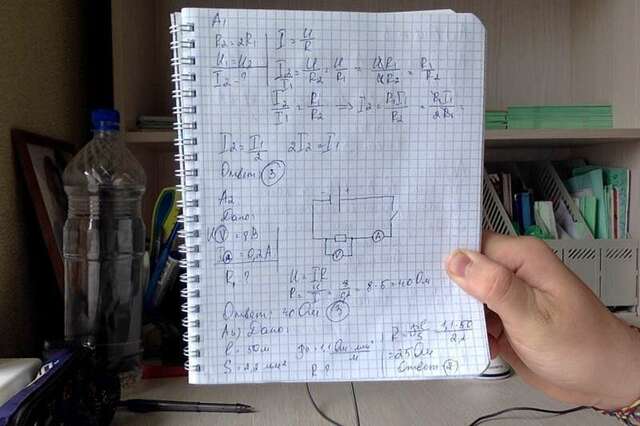 A1
R2=2R1 I=U/R
U1=U2
I2=? I2/I1=U/R2:U/R1=UR1/UR2=R1/R2
I2/I1=R1/R2 → I2=R1I1/R2=R1I1/2R1=
I2=I1/2 2I2=I1
Ответ: 3
A2
Дано:
- +
U V=8В
A
V
I A=0,2А
R, ? U=IR
R=U/I=8/0,2=8·5=40Ом
Ответ: 40Ом
A3) Дано:
l=50м ρ=1,1 Ом·мм²/м R=ρl/S=1,1·50/2,2
=25Ом
S=2,2мм² R? Ответ: